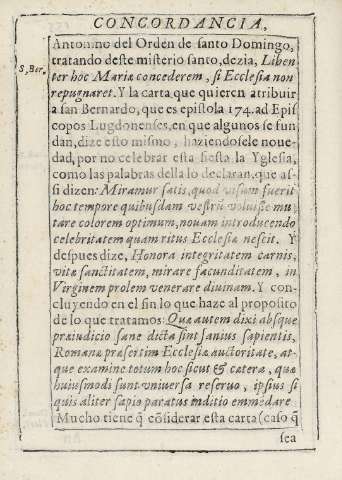 CONCORDANCIA,
Antonino del Orden de santo Domingo,
tratando deste misterio santo, dezia, Liben
S. Ber.
ter hoc Mariæ concederem, si Ecclesia non
repugnaret. Y la carta que quieren atribuir
a san Bernardo, que es epistola 174. ad Epis
copos Lugdonenses, en que algunos se fun
dan, dize esto mismo, haziendosele noue-
dad, por no celebrar esta fiesta la Yglesia,
como las palabras della lo declaran, que as-
si dizen: Miramur satis, quod visum fuerit
hoc tempore quibusdam vestrū voluisse mu
tare colorem optimum, nouam introducendo
celebritatem quam ritus Ecclesiæ nescit. Y
despues dize, Honora integritatem carnis,
vitæ sanctitatem, mirare fæcunditatem, in
Virginem prolem venerare diuinam. Y con-
cluyendo en el fin lo que haze al proposito
de lo que tratamos: Quæ autem dixi absque
præiudicio sane dicta sint sanius sapientis,
Romanæ præsertim Ecclesiæ auctoritate, at-
que examine totum hoc sicut & cætera, quæ
huiusmodi sunt vniuersa reseruo, ipsius si
quis aliter sapio paratus inditio emmēdare
Mucho tiene q̄ cōsiderar esta carta (caso q̄
sea